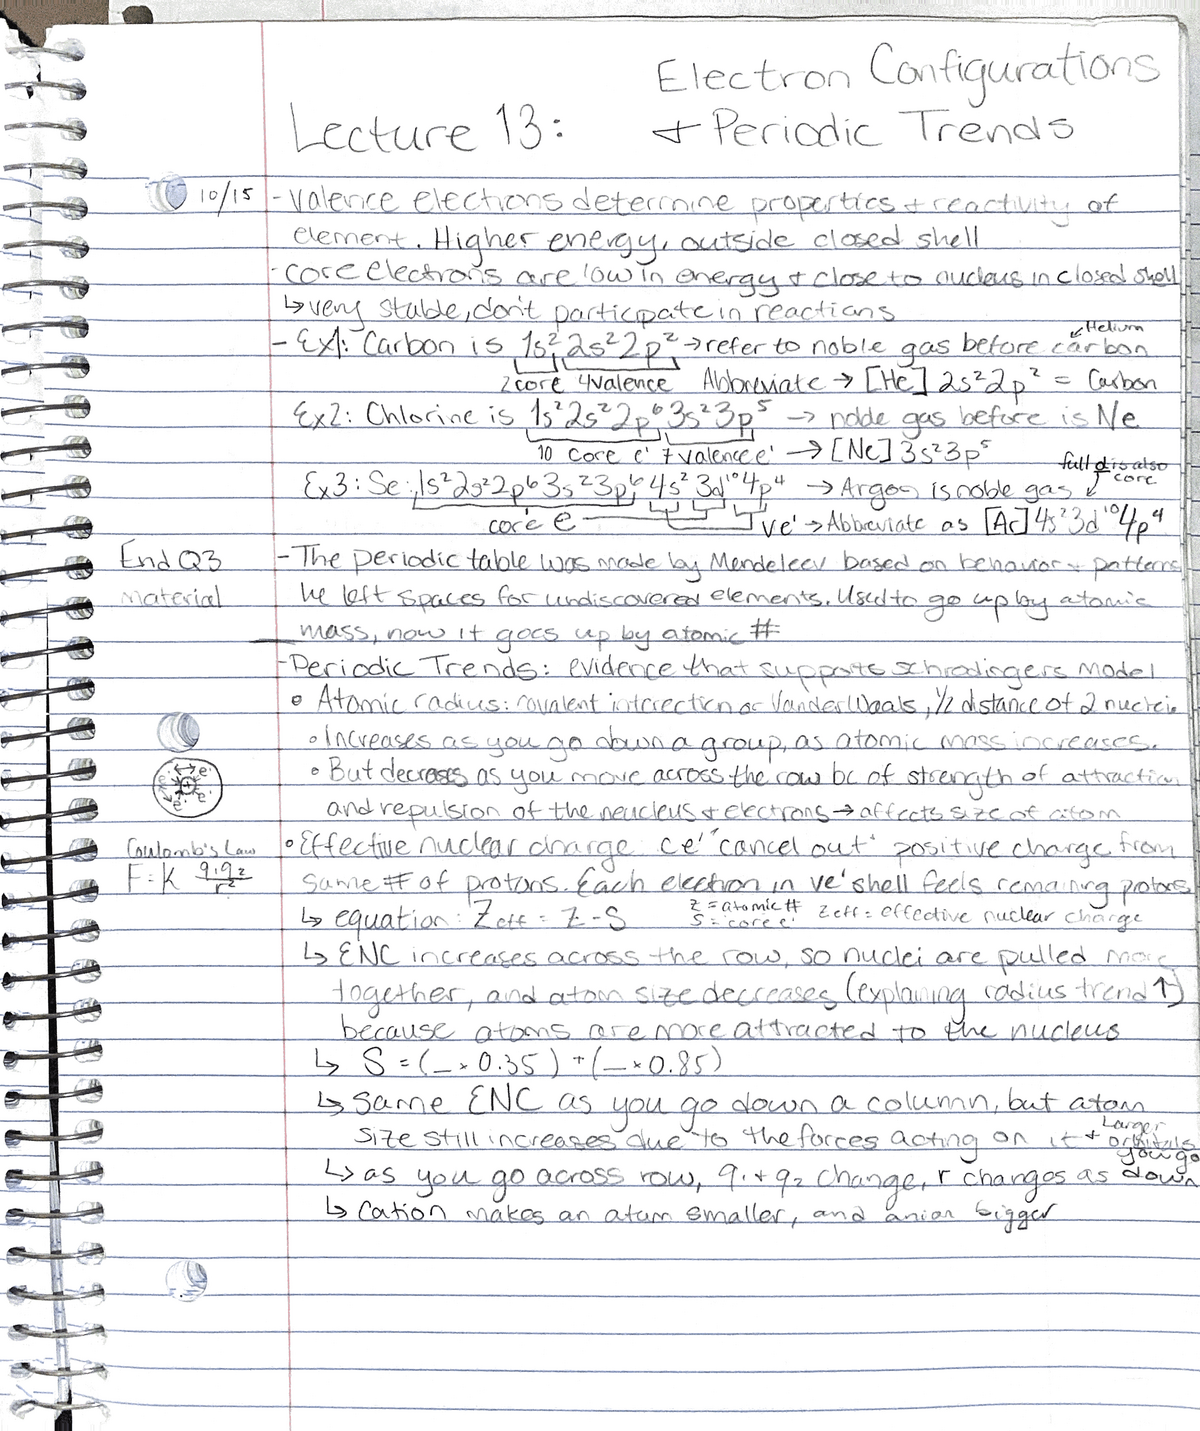 Electron Configurations
Lecture 13: + Periodic Trends
10/15 - Valence electrons determine properties + reactivity of
element. Higher energy, outside closed shell
- core electrons are low in energy + close to nucleus in closed shell
↳ very stable, don't participate in reactions
- Ex1: Carbon is 1s² 2s² 2p² → refer to noble gas before carbon ↙ Helium
2 core 4 valence Abbreviate → [He] 2s² 2p² = Carbon
Ex2: Chlorine is 1s² 2s² 2p⁶ 3s² 3p⁵ → noble gas before is Ne
10 core e⁻ 7 valence e⁻ → [Ne] 3s² 3p⁵
full d is also core
Ex3: Se: 1s² 2s² 2p⁶ 3s² 3p⁶ 4s² 3d¹⁰ 4p⁴ → Argon is noble gas
core e ve⁻ → Abbreviate as [Ar] 4s² 3d¹⁰ 4p⁴
End Q3 - The periodic table was made by Mendeleev based on behavior + patterns
Material he left spaces for undiscovered elements. Used to go up by atomic
mass, now it goes up by atomic #
- Periodic Trends: evidence that supports schrodingers model
• Atomic radius: covalent interection or VanderWaals, 1/2 distance of 2 nucleii
• Increases as you go down a group, as atomic mass increases.
• But decreases as you move across the row bc of strength of attraction
e⁻ e⁻ e⁻ e⁻ +
and repulsion of the neucleus + electrons → affects size of atom
Coulomb's Law • Effective nuclear charge: ce⁻ "cancel out" positive charge from
F = K q₁q₂/r² same # of protons. Each electron in ve⁻ shell feels remaining protons
↳ equation: Zeff = Z - S Z = atomic # S = core e⁻ Zeff = effective nuclear charge
↳ ENC increases across the row, so nuclei are pulled more
together, and atom size decreases (explaining radius trend ↑)
because atoms are more attracted to the nucleus
↳ S = (_ × 0.35) + (_ × 0.85)
↳ Same ENC as you go down a column, but atom
size still increases due to the forces acting on it + Larger orbitals
↳ as you go across row, q₁ + q₂ change, r changes as you go down
↳ Cation makes an atom smaller, and anion bigger